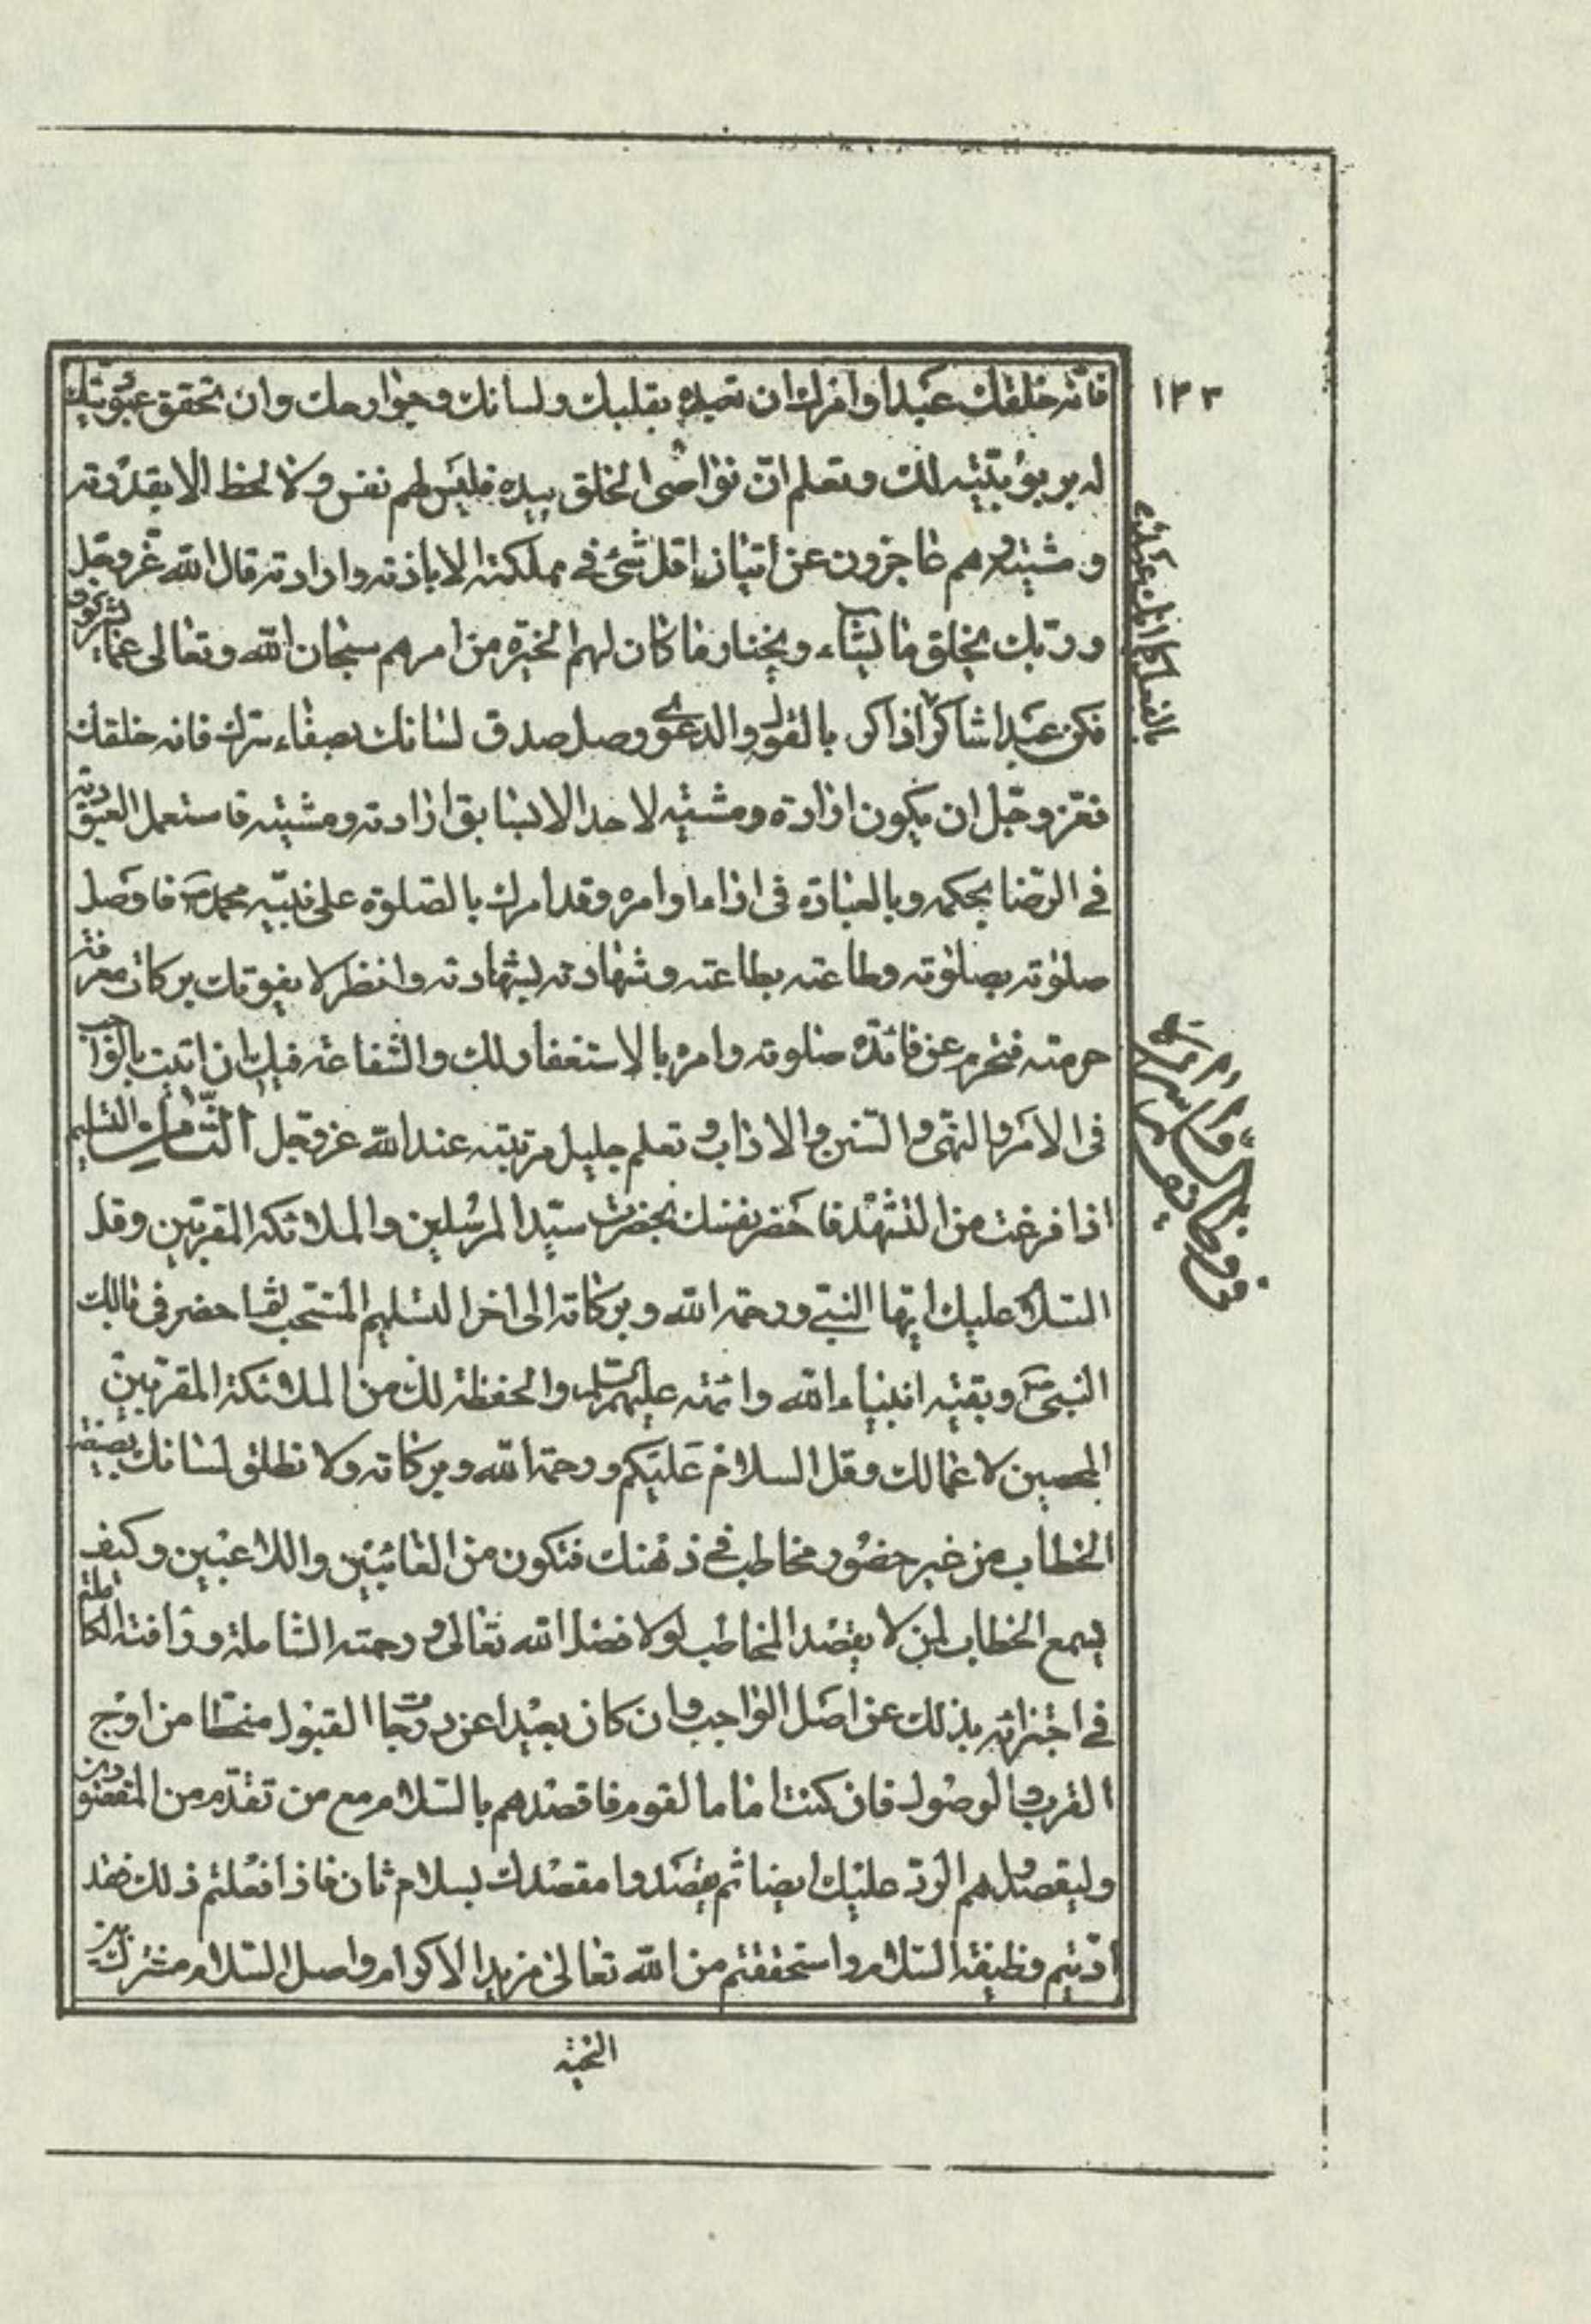 ١٢٣
فانه خلقك عبدا وامرك ان تعبده بقلبك ولسانك وجوارحك وان تحقق عبوديتك
له بربوبيته لك وتعلم ان نواصى الخلق بيده فليس لهم نفس ولا لحظ الا بقدرته
ومشيته وهم عاجزون عن اتيان اقل شئ فى مملكته الا باذنه وارادته قال الله عز وجل
وربك يخلق ما يشاء ويختار ما كان لهم الخيرة من امرهم سبحان الله وتعالى عما يشركون
فكن عبدا شاكرا ذاكرا بالقول والدعوى وصل صدق لسانك بصفاء سرك فانه خلقك
فعز وجل ان يكون ارادة ومشية لاحد الا بسابق ارادته ومشيته فاستعمل العبودية
فى الرضا بحكمه وبالعبادة فى اداء اوامره وقد امرك بالصلوة على نبيه محمد ص فاوصل
صلوته بصلوته وطاعته بطاعته وشهادته بشهادته وانظر لا يفوتك بركات معرفة
حرمته فتحرم عن فائدة صلوته وامره بالاستغفار لك والشفاعة فيك ان اتيت بالواجب
فى الامر والنهى والسنن والاداب وتعلم جليل مرتبته عند الله عز وجل الثامن التسليم
اذا فرغت من التشهد فاحضر نفسك بحضرت سيد المرسلين والملائكة المقربين وقل
السلام عليك ايها النبى ورحمة الله وبركاته الى اخر التسليم المستحب لقيا حضر فى بالك
النبى ص وبقية انبياء الله وائمته عليهم السلام والحفظة لك من الملائكة المقربين
المحصين لاعمالك وقل السلام عليكم ورحمة الله وبركاته ولا تطلق لسانك بصيغة
الخطاب من غير حضور مخاطب فى ذهنك فتكون من العابثين واللاعبين وكيف
يسمع الخطاب لمن لا يقصد المخاطب لولا فضل الله تعالى ورحمته الشاملة ورافته الكاملة
فى اجتزائه بذلك عن اصل الواجب وان كان بعيدا عن درجات القبول منحطا من اوج
القرب والوصول فان كنت اماما لقوم فاقصدهم بالسلام مع من تقدم من المقصودين
وليقصدوا هم الرد عليك ايضا ثم يقصدوا مقصدك بسلام ثان فاذا فعلتم ذلك فقد
اديتم وظيفة السلام واستحققتم من الله تعالى مزيد الاكرام واصل السلام مشترك بين
التحية